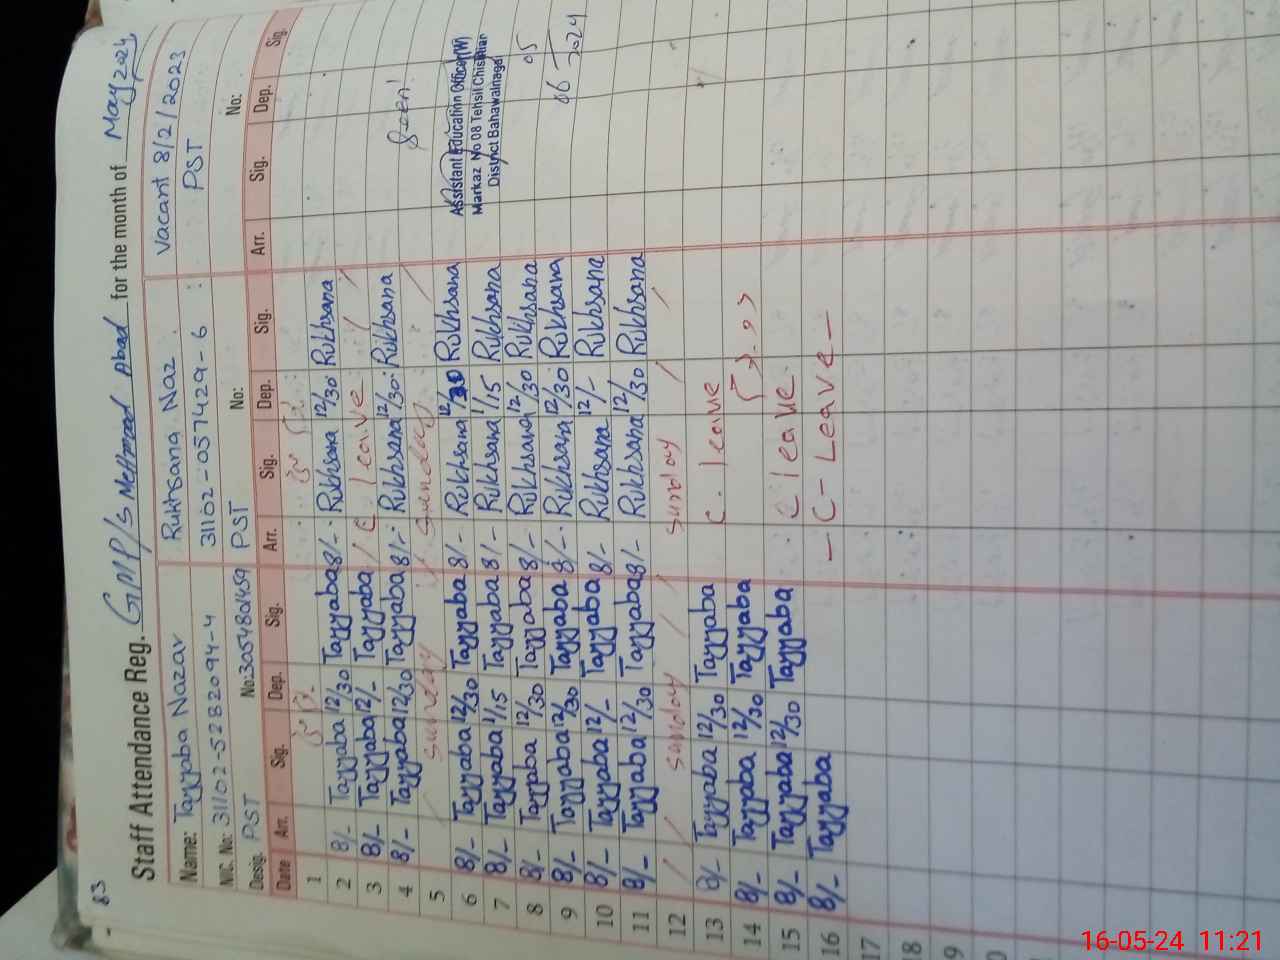 83
Staff Attendance Reg. GMP/s Mehmood Abad for the month of May 2024
Name: Tayyaba Nazar Rukhsana Naz Vacant 8/2/2023
NIC. No: 31102-5282094-4 31102-057429-6 PST
Desig. PST No: 3054801459 PST No: No:
Date Arr. Sig. Dep. Sig. Arr. Sig. Dep. Sig. Arr. Sig. Dep. Sig.
1
2 8/- Tayyaba 12/30 Tayyaba 8/- Rukhsana 12/30 Rukhsana
3 8/- Tayyaba 12/- Tayyaba C. leave
4 8/- Tayyaba 12/30 Tayyaba 8/- Rukhsana 12/30 Rukhsana Seen!
5 Sunday Sunday
6 8/- Tayyaba 12/30 Tayyaba 8/- Rukhsana 12/30 Rukhsana Assistant Education Officer (W)
7 8/- Tayyaba 1/15 Tayyaba 8/- Rukhsana 1/15 Rukhsana Markaz No 08 Tehsil Chishtian
District Bahawalnagar
8 8/- Tayyaba 12/30 Tayyaba 8/- Rukhsana 12/30 Rukhsana
9 8/- Tayyaba 12/30 Tayyaba 8/- Rukhsana 12/30 Rukhsana 06 05 2024
10 8/- Tayyaba 12/- Tayyaba 8/- Rukhsana 12/- Rukhsana
11 8/- Tayyaba 12/30 Tayyaba 8/- Rukhsana 12/30 Rukhsana
12 Sunday Sunday
13 8/- Tayyaba 12/30 Tayyaba C. leave
14 8/- Tayyaba 12/30 Tayyaba
15 8/- Tayyaba 12/30 Tayyaba C leave
16 8/- Tayyaba - C - Leave -
17
18
16-05-24 11:21